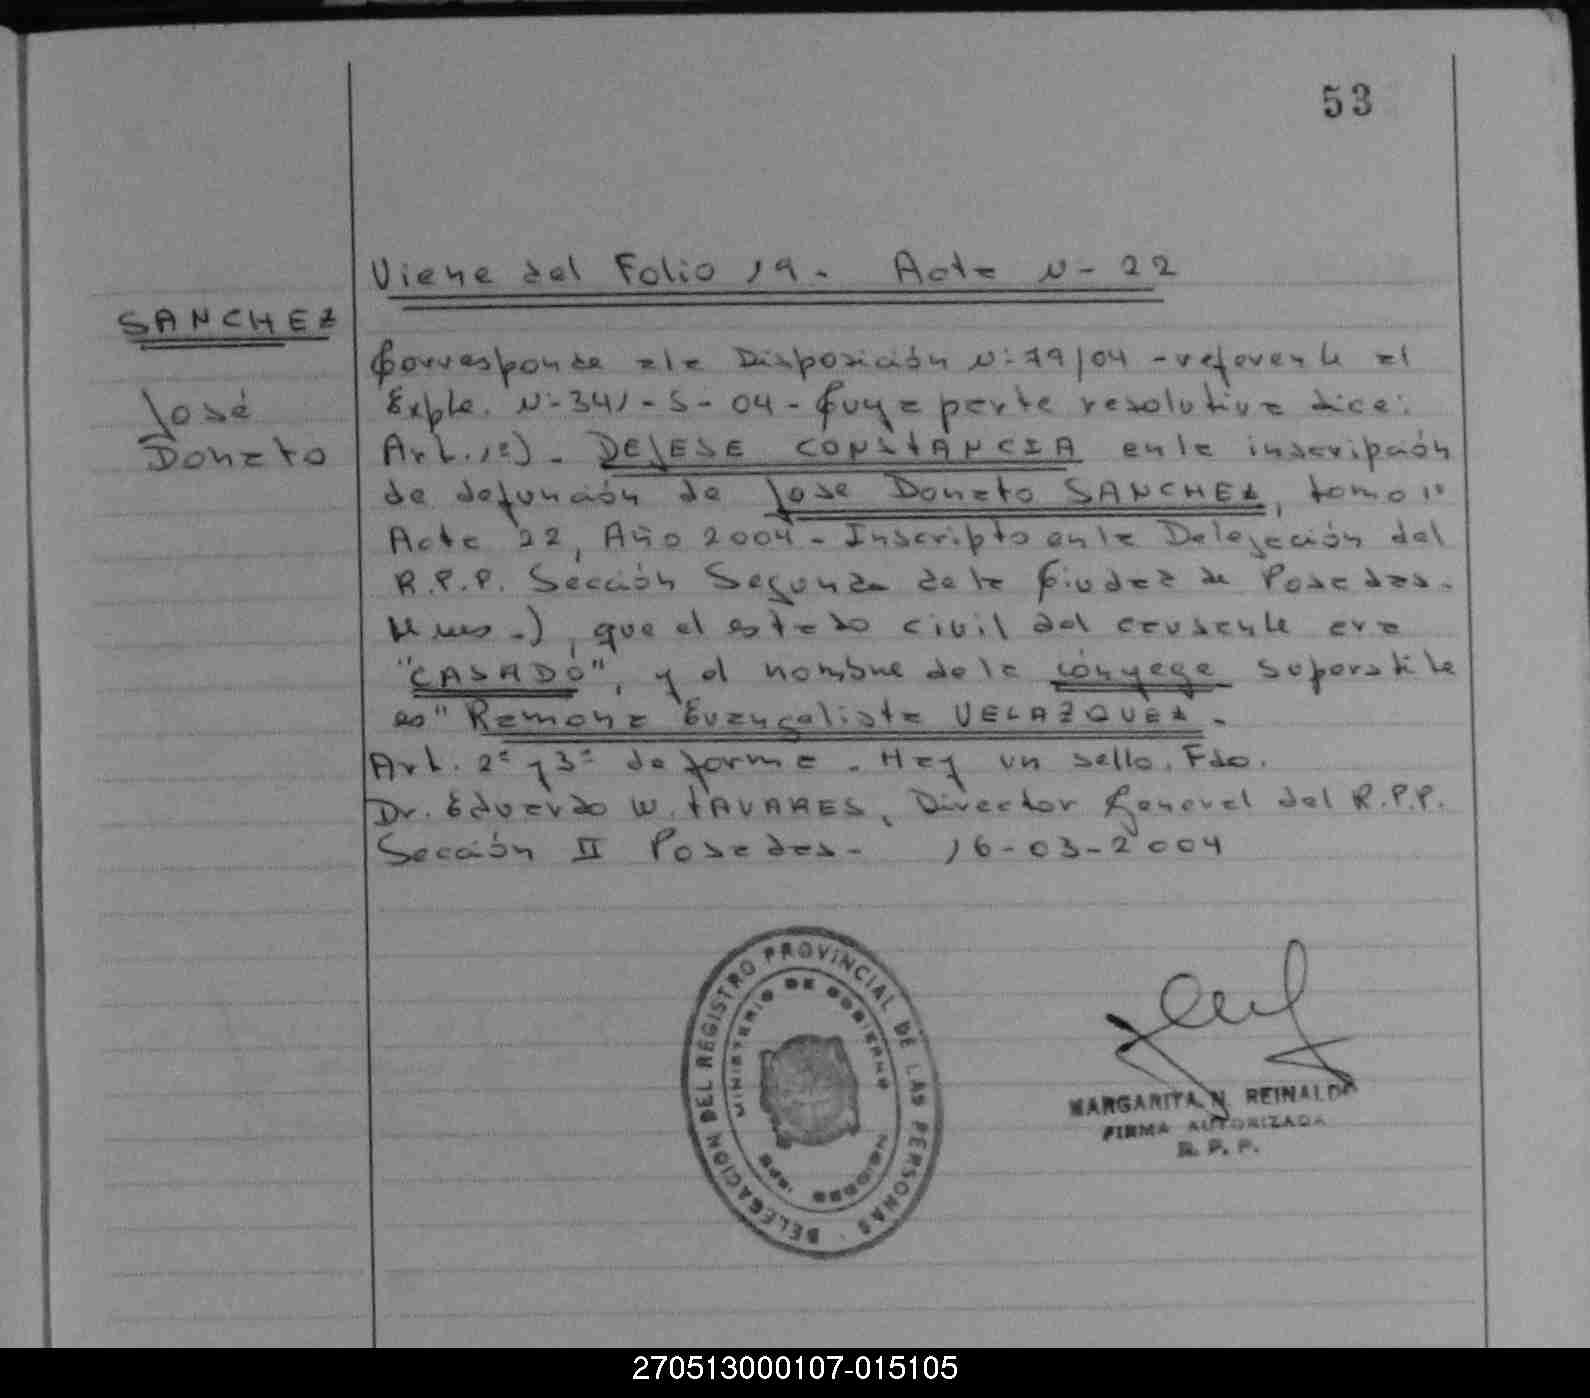 53
Viene del Folio 19. Acta N- 22
SANCHEZ
José
Donato
Corresponde a la Disposición N: 79/04 - referente al
Expte. N:- 341 - S - 04 - Cuya parte resolutiva dice:
Art. 1º) - DEJESE CONSTANCIA en la inscripción
de defunción de Jose Donato SANCHEZ, tomo 1º
Acta 22, Año 2004 - Inscripto en la Delegación del
R.P.P. Sección Segunda de la Ciudad de Posadas.
-), que el estado civil del causante era
"CASADO", y el nombre de la cónyege superstite
es "Ramona Evangalista VELAZQUEZ -
Art. 2º y 3º de forma. Hay un sello. Fdo.
Dr. Eduardo W. TAVARES, Director General del R.P.P.
Sección II Posadas - 16-03-2004
DELEGACION DEL REGISTRO PROVINCIAL DE LAS PERSONAS
MINISTERIO DE GOBIERNO
MARGARITA N. REINALDO
FIRMA AUTORIZADA
R. P. P.
270513000107-015105